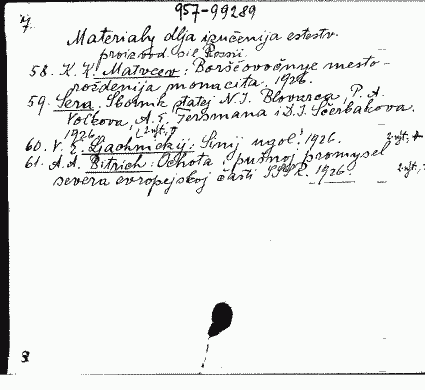 957-99289
Materialy dlja izučenija estestv.
proizvod. sil Rossii.
58. K. K. Matveev: Borščovočnye mesto-
roždenija monacita. 1926.
59. Sera. Sbornik statej N. I.
Volkova, A. E. Fersmana i D. I. Ščerbakova.
1926.
60. V. E. Ljachnickij: Sinij ugol'. 1926.
61. A. A. Bitrich: Ochota i pušnoj promysel
severa evropejskoj časti SSSR. 1926.